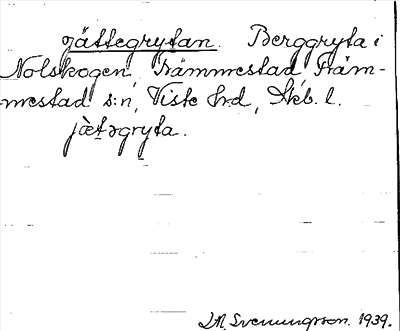 jättegrytan. Berggryta i
Nolskogen, Främmestad, Främ-
mestad s:n, Viste hrd, Skb. l.
jæ̀t̬əgryta.
L.M. Svenungsson. 1939.